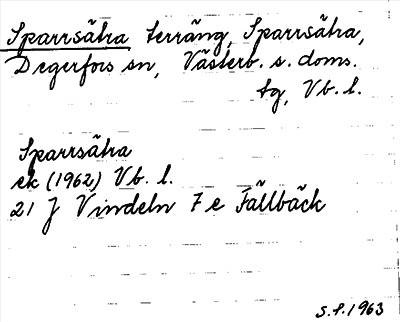 Sparrsätra terräng, Sparrsätra,
Degerfors sn, Västerb. s. doms.
tg, Vb. l.
Sparrsätra
ek (1962) Vb. l.
21 J Vindeln 7 e Fällbäck
S.f. 1963